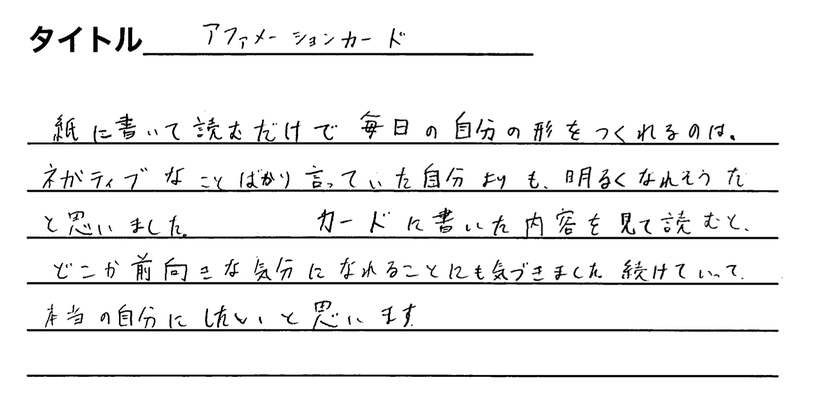 タイトル アファメーションカード
紙に書いて読むだけで 毎日の自分の形をつくれるのは。
ネガティブなことばかり言っていた自分よりも、明るくなれそうだ
と思いました。 カードに書いた内容を見て読むと、
どこか前向きな気分になれることにも気づきました 続けていって
本当の自分にしたいと思います